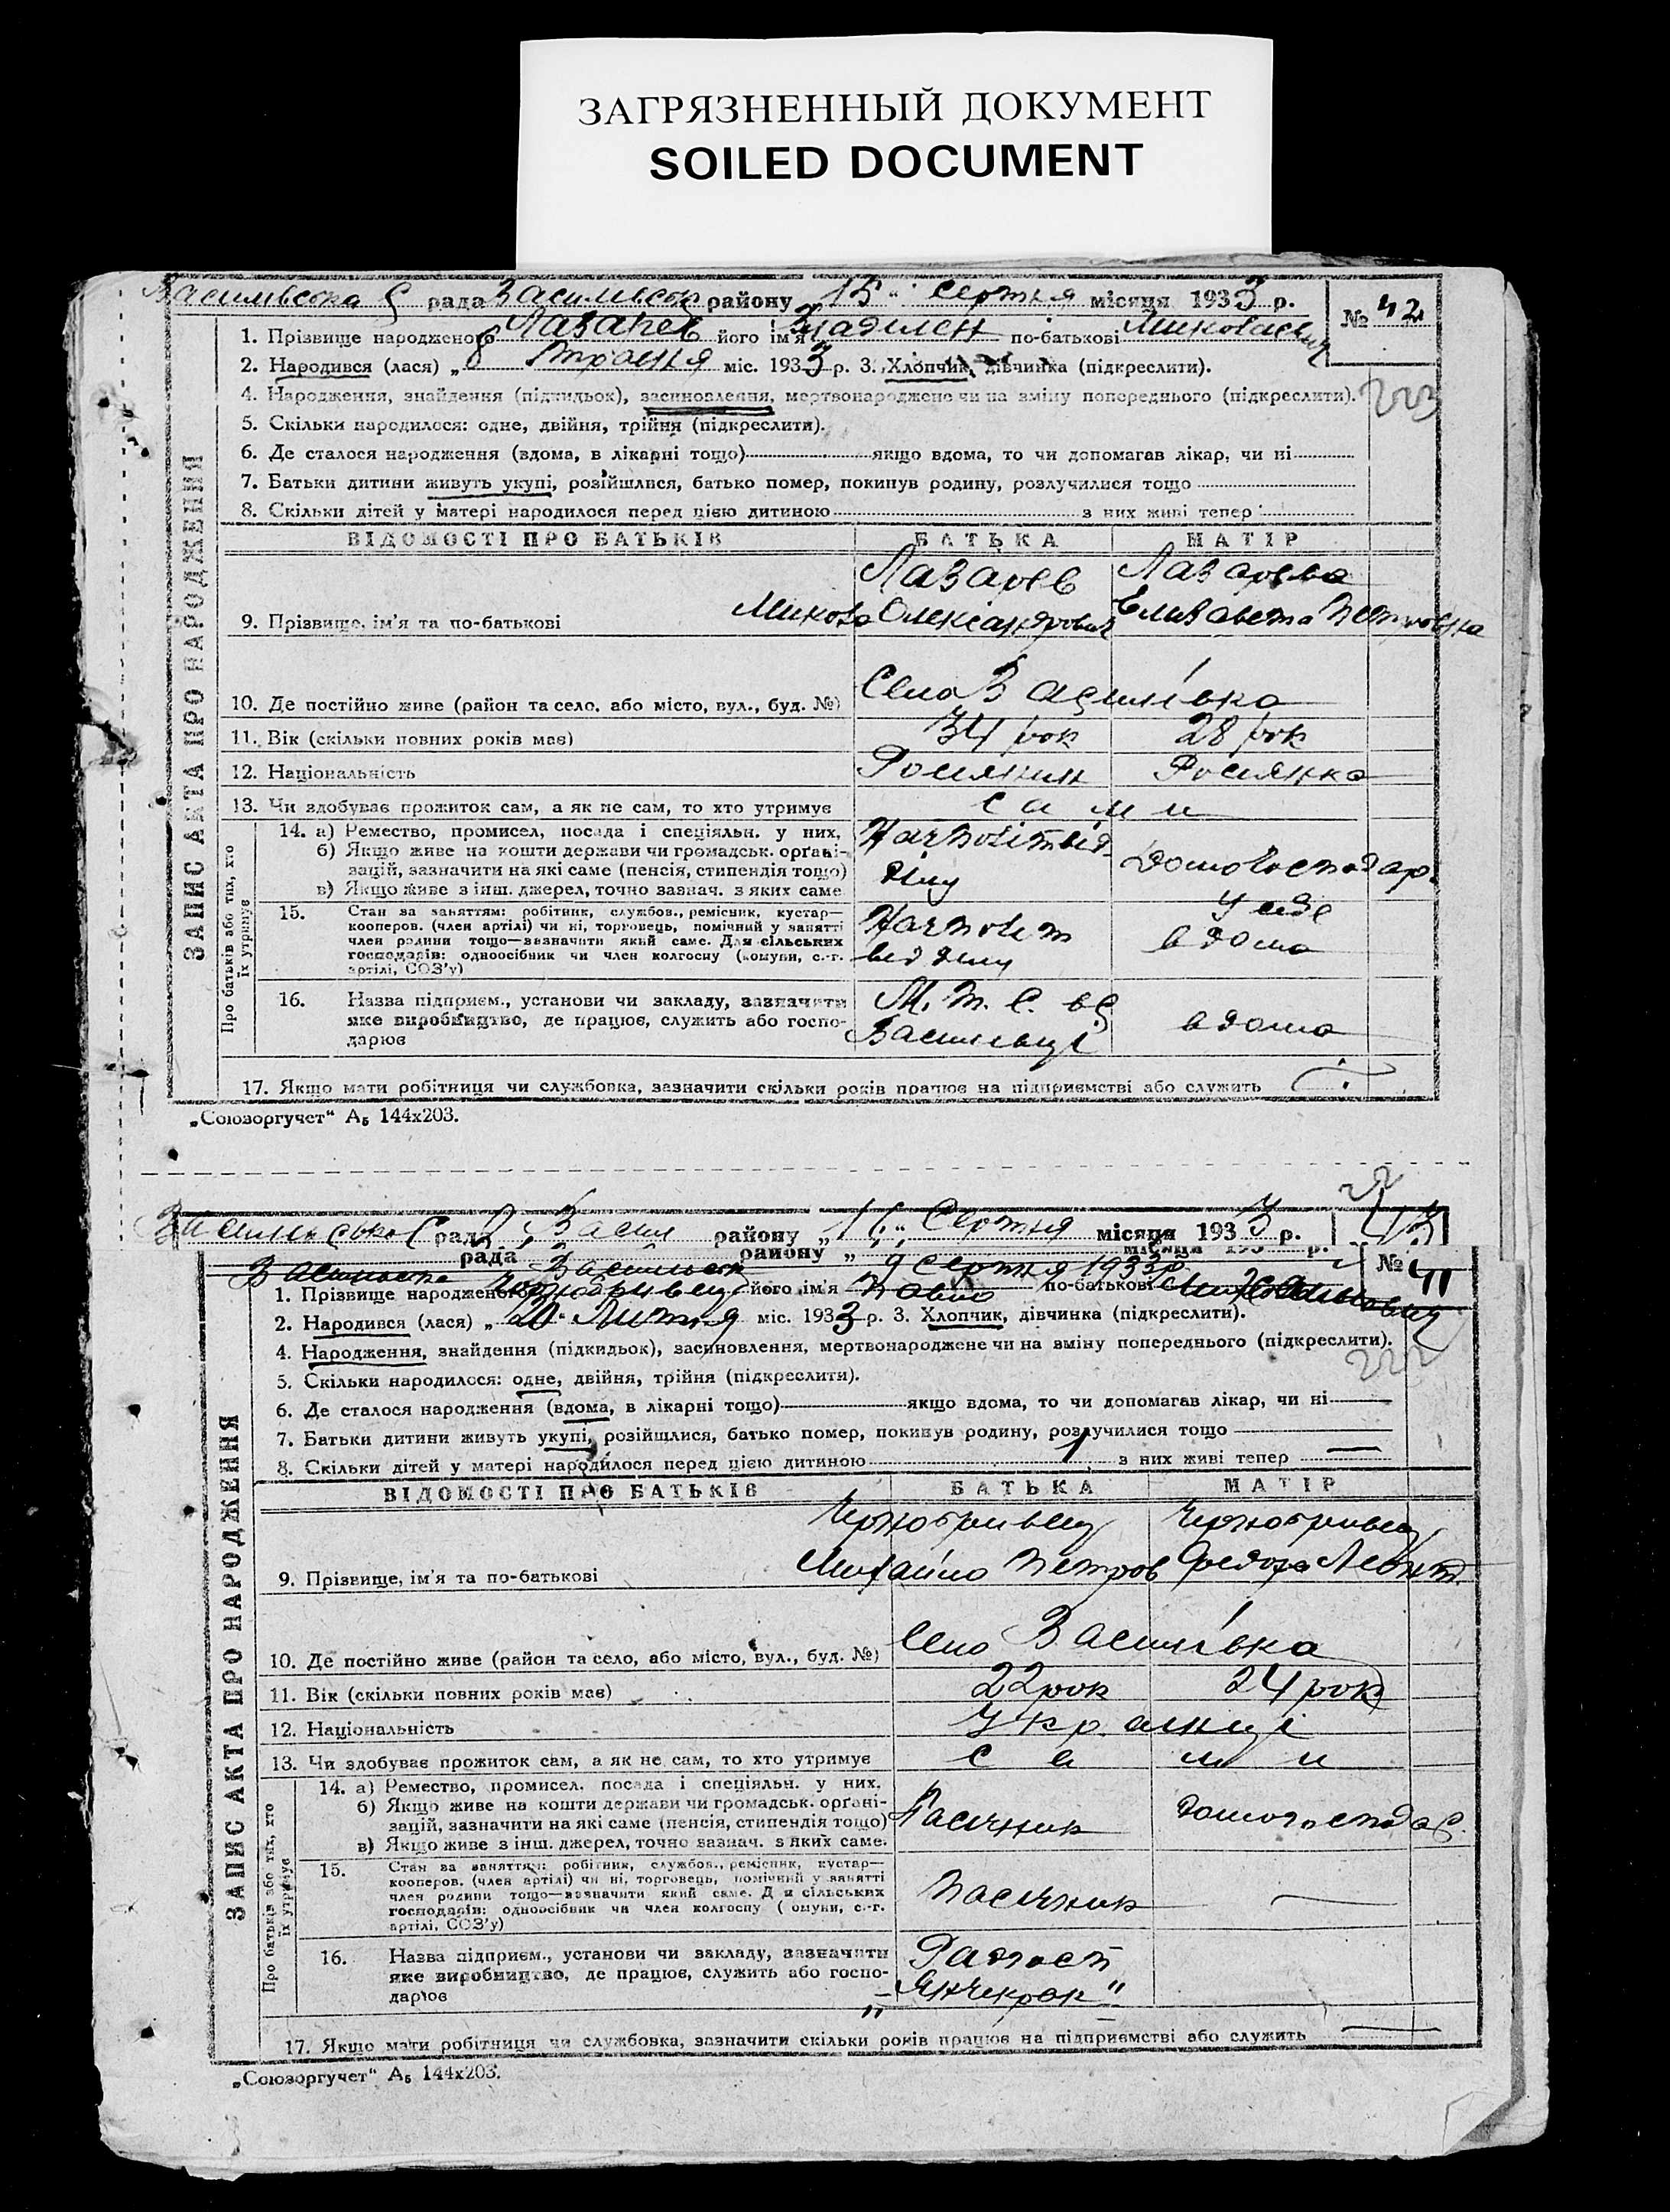 ЗАГРЯЗНЕННЫЙ ДОКУМЕНТ
SOILED DOCUMENT
рада району „15“ Серпня місяця 1933 р.
№ 42
1. Прізвище народженого Лазарев його ім'я по-батькові
2. Народився (лася) „8 Травня міс. 1933 р. 3. Хлопчик, дівчинка (підкреслити).
4. Народження, знайдення (підкидьок), засиновлення, мертвонароджене чи на зміну попереднього (підкреслити).
223
5. Скільки народилося: одне, двійня, трійня (підкреслити).
6. Де сталося народження (вдома, в лікарні тощо) якщо вдома, то чи допомагав лікар, чи ні
7. Батьки дитини живуть укупі, розійшлися, батько помер, покинув родину, розлучилися тощо
8. Скільки дітей у матері народилося перед цією дитиною з них живі тепер
ЗАПИС АКТА ПРО НАРОДЖЕННЯ
ВІДОМОСТІ ПРО БАТЬКІВ БАТЬКА МАТІР
Лазарев Лазарева
9. Прізвище, ім'я та по-батькові Микола Олександрович Елизавета Петровна
10. Де постійно живе (район та село, або місто, вул., буд. №) Село Василівка
11. Вік (скільки повних років має) 34 рок 28 рок
12. Національність Росиянин Росиянка
13. Чи здобуває прожиток сам, а як не сам, то хто утримує сами
Про батьків або тих, хто їх утримує
14. а) Ремество, промисел, посада і спеціяльн. у них,
б) Якщо живе на кошти держави чи громадськ. орґані-
зацій, зазначити на які саме (пенсія, стипендія тощо)
в) Якщо живе з інш. джерел, точно зазнач. з яких саме
15. Стан за заняттям: робітник, службов., ремісник, кустар—
кооперов. (член артілі) чи ні, торговець, помічний у занятті
член родини тощо—зазначити який саме. Для сільських
господарів: одноосібник чи член колгоспу (комуни, с.-г.
артілі, СОЗ'у)
вдома
16. Назва підприєм., установи чи закладу, зазначити
яке виробництво, де працює, служить або госпо-
дарює
М. Т. С. в
Василівці
вдома
17. Якщо мати робітниця чи службовка, зазначити скільки років працює на підприємстві або служить
„Союзоргучет“ А₅ 144х203.
рада Васил району Серпня місяця 1933 р.
рада району „ місяця 193 р.
9 Серпня 1933 р.
№ 41
1. Прізвище народженого Чорнобривец його ім'я Павло по-батькові Михайлович
2. Народився (лася) „20“ Липня міс. 1933 р. 3. Хлопчик, дівчинка (підкреслити).
4. Народження, знайдення (підкидьок), засиновлення, мертвонароджене чи на зміну попереднього (підкреслити).
222
5. Скільки народилося: одне, двійня, трійня (підкреслити).
6. Де сталося народження (вдома, в лікарні тощо) якщо вдома, то чи допомагав лікар, чи ні
7. Батьки дитини живуть укупі, розійшлися, батько помер, покинув родину, розлучилися тощо
8. Скільки дітей у матері народилося перед цією дитиною 1 з них живі тепер
ЗАПИС АКТА ПРО НАРОДЖЕННЯ
ВІДОМОСТІ ПРО БАТЬКІВ БАТЬКА МАТІР
Чернобривец Чернобривец
9. Прізвище, ім'я та по-батькові Михайло Петров Леонт.
10. Де постійно живе (район та село, або місто, вул., буд. №) Село Василівка
11. Вік (скільки повних років має) 22 рок 24 рок
12. Національність Українці
13. Чи здобуває прожиток сам, а як не сам, то хто утримує сами
Про батьків або тих, хто їх утримує
14. а) Ремество, промисел, посада і спеціяльн. у них,
б) Якщо живе на кошти держави чи громадськ. орґані-
зацій, зазначити на які саме (пенсія, стипендія тощо)
в) Якщо живе з інш. джерел, точно зазнач. з яких саме.
Пасічник домогосподар.
15. Стан за заняттям: робітник, службов., ремісник, кустар—
кооперов. (член артілі) чи ні, торговець, помічний у занятті
член родини тощо—зазначити який саме. Для сільських
господарів: одноосібник чи член колгоспу (комуни, с.-г.
артілі, СОЗ'у)
Пасічник
16. Назва підприєм., установи чи закладу, зазначити
яке виробництво, де працює, служить або госпо-
дарює
Радгосп
„Янчекрак“
17. Якщо мати робітниця чи службовка, зазначити скільки років працює на підприємстві або служить
„Союзоргучет“ А₅ 144х203.